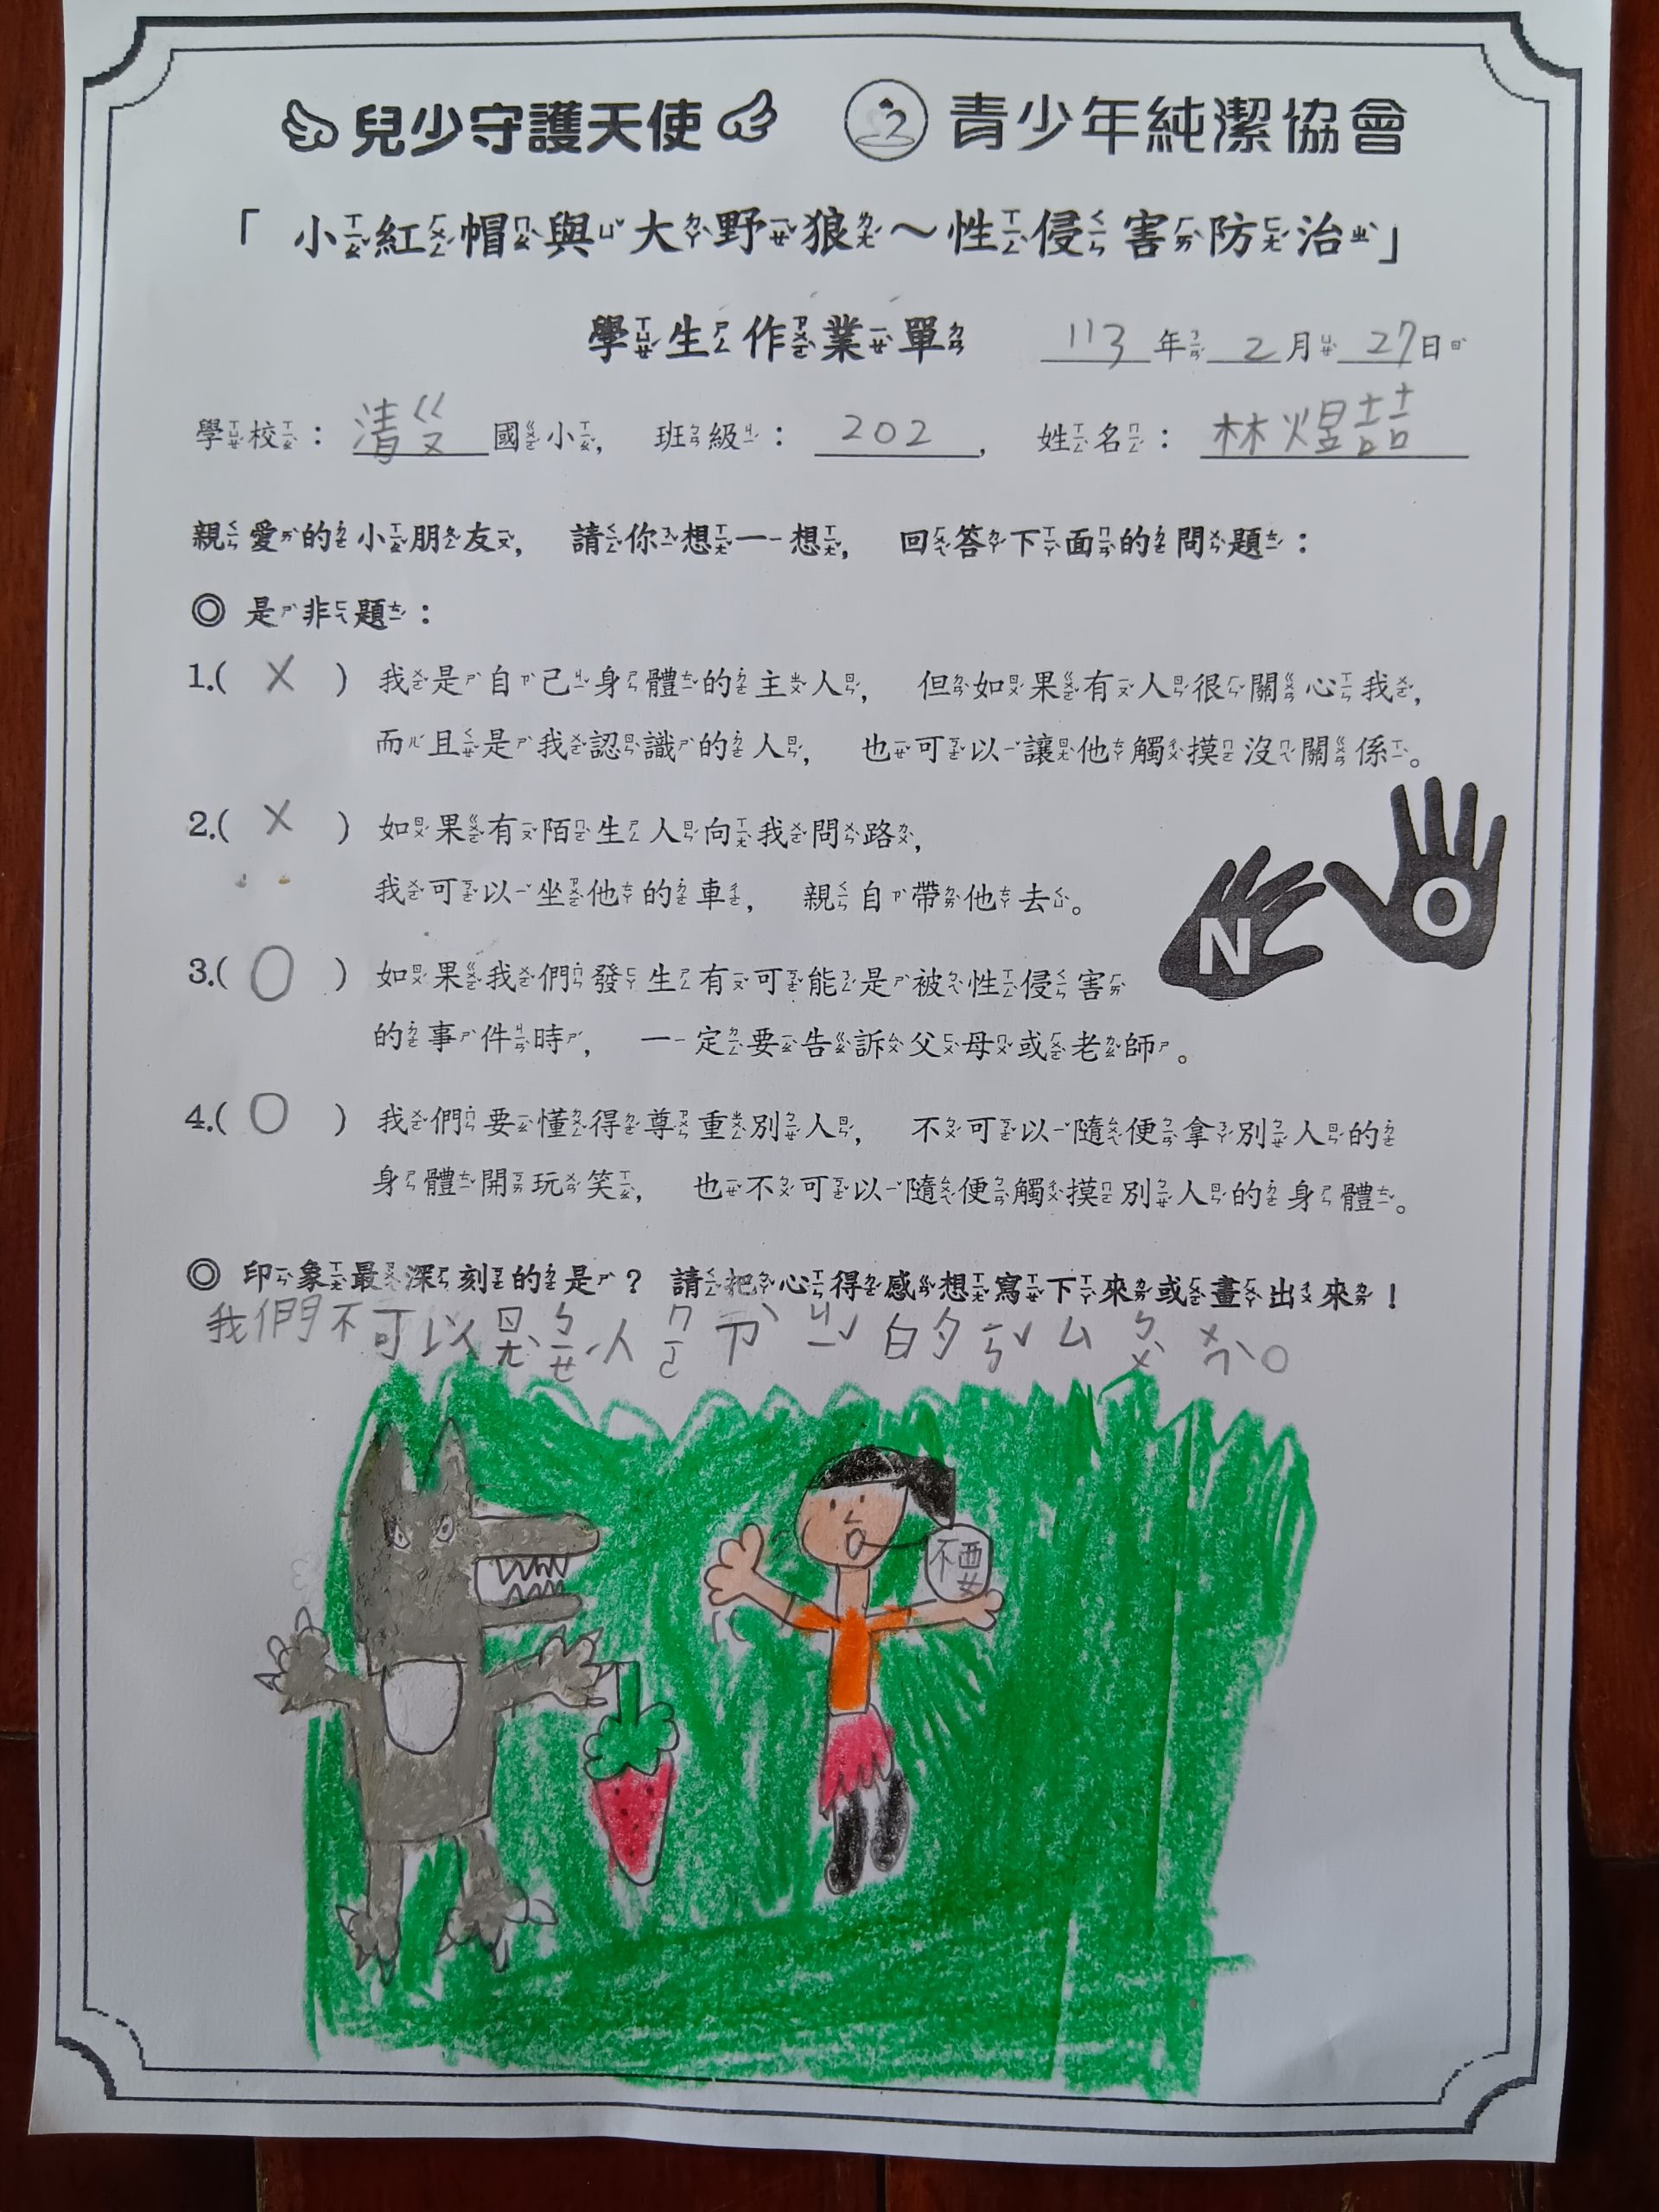 兒少守護天使 青少年純潔協會
「小紅帽與大野狼～性侵害防治」
學生作業單 113年2月27日
學校：清ㄍㄡ國小，班級：202，姓名：林煜喆
親愛的小朋友，請你想一想，回答下面的問題：
◎ 是非題：
1.( X ) 我是自己身體的主人，但如果有人很關心我，
而且是我認識的人，也可以讓他觸摸沒關係。
2.( X ) 如果有陌生人向我問路，
我可以坐他的車，親自帶他去。
3.( O ) 如果我們發生有可能是被性侵害
的事件時，一定要告訴父母或老師。
4.( O ) 我們要懂得尊重別人，不可以隨便拿別人的
身體開玩笑，也不可以隨便觸摸別人的身體。
NO
◎ 印象最深刻的是？請把心得感想寫下來或畫出來！
我們不可以ㄖㄤˋㄅㄧㄝˊ人ㄇㄛㄗˋㄐㄧˇ的
不要